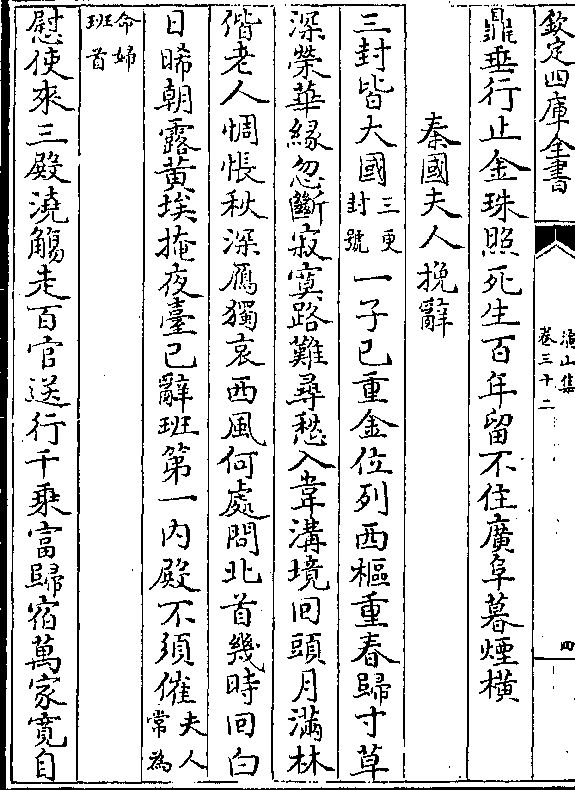 欽定四庫全書
演山集
卷三十二
四
鼎垂行止金珠照死生百年留不住廣阜暮煙橫
秦國夫人挽辭
三封皆大國三更封號一子已重金位列西樞重春歸寸草
深榮華緣忽斷寂寞路難尋愁入韋溝境回頭月滿林
偕老人惆悵秋深鴈獨哀西風何處問北首幾時回白
日晞朝露黄埃掩夜臺已辭班第一内殿不須催夫人常為
命婦班首
慰使來三殿澆觴走百官送行千乘富歸宿萬家寛自